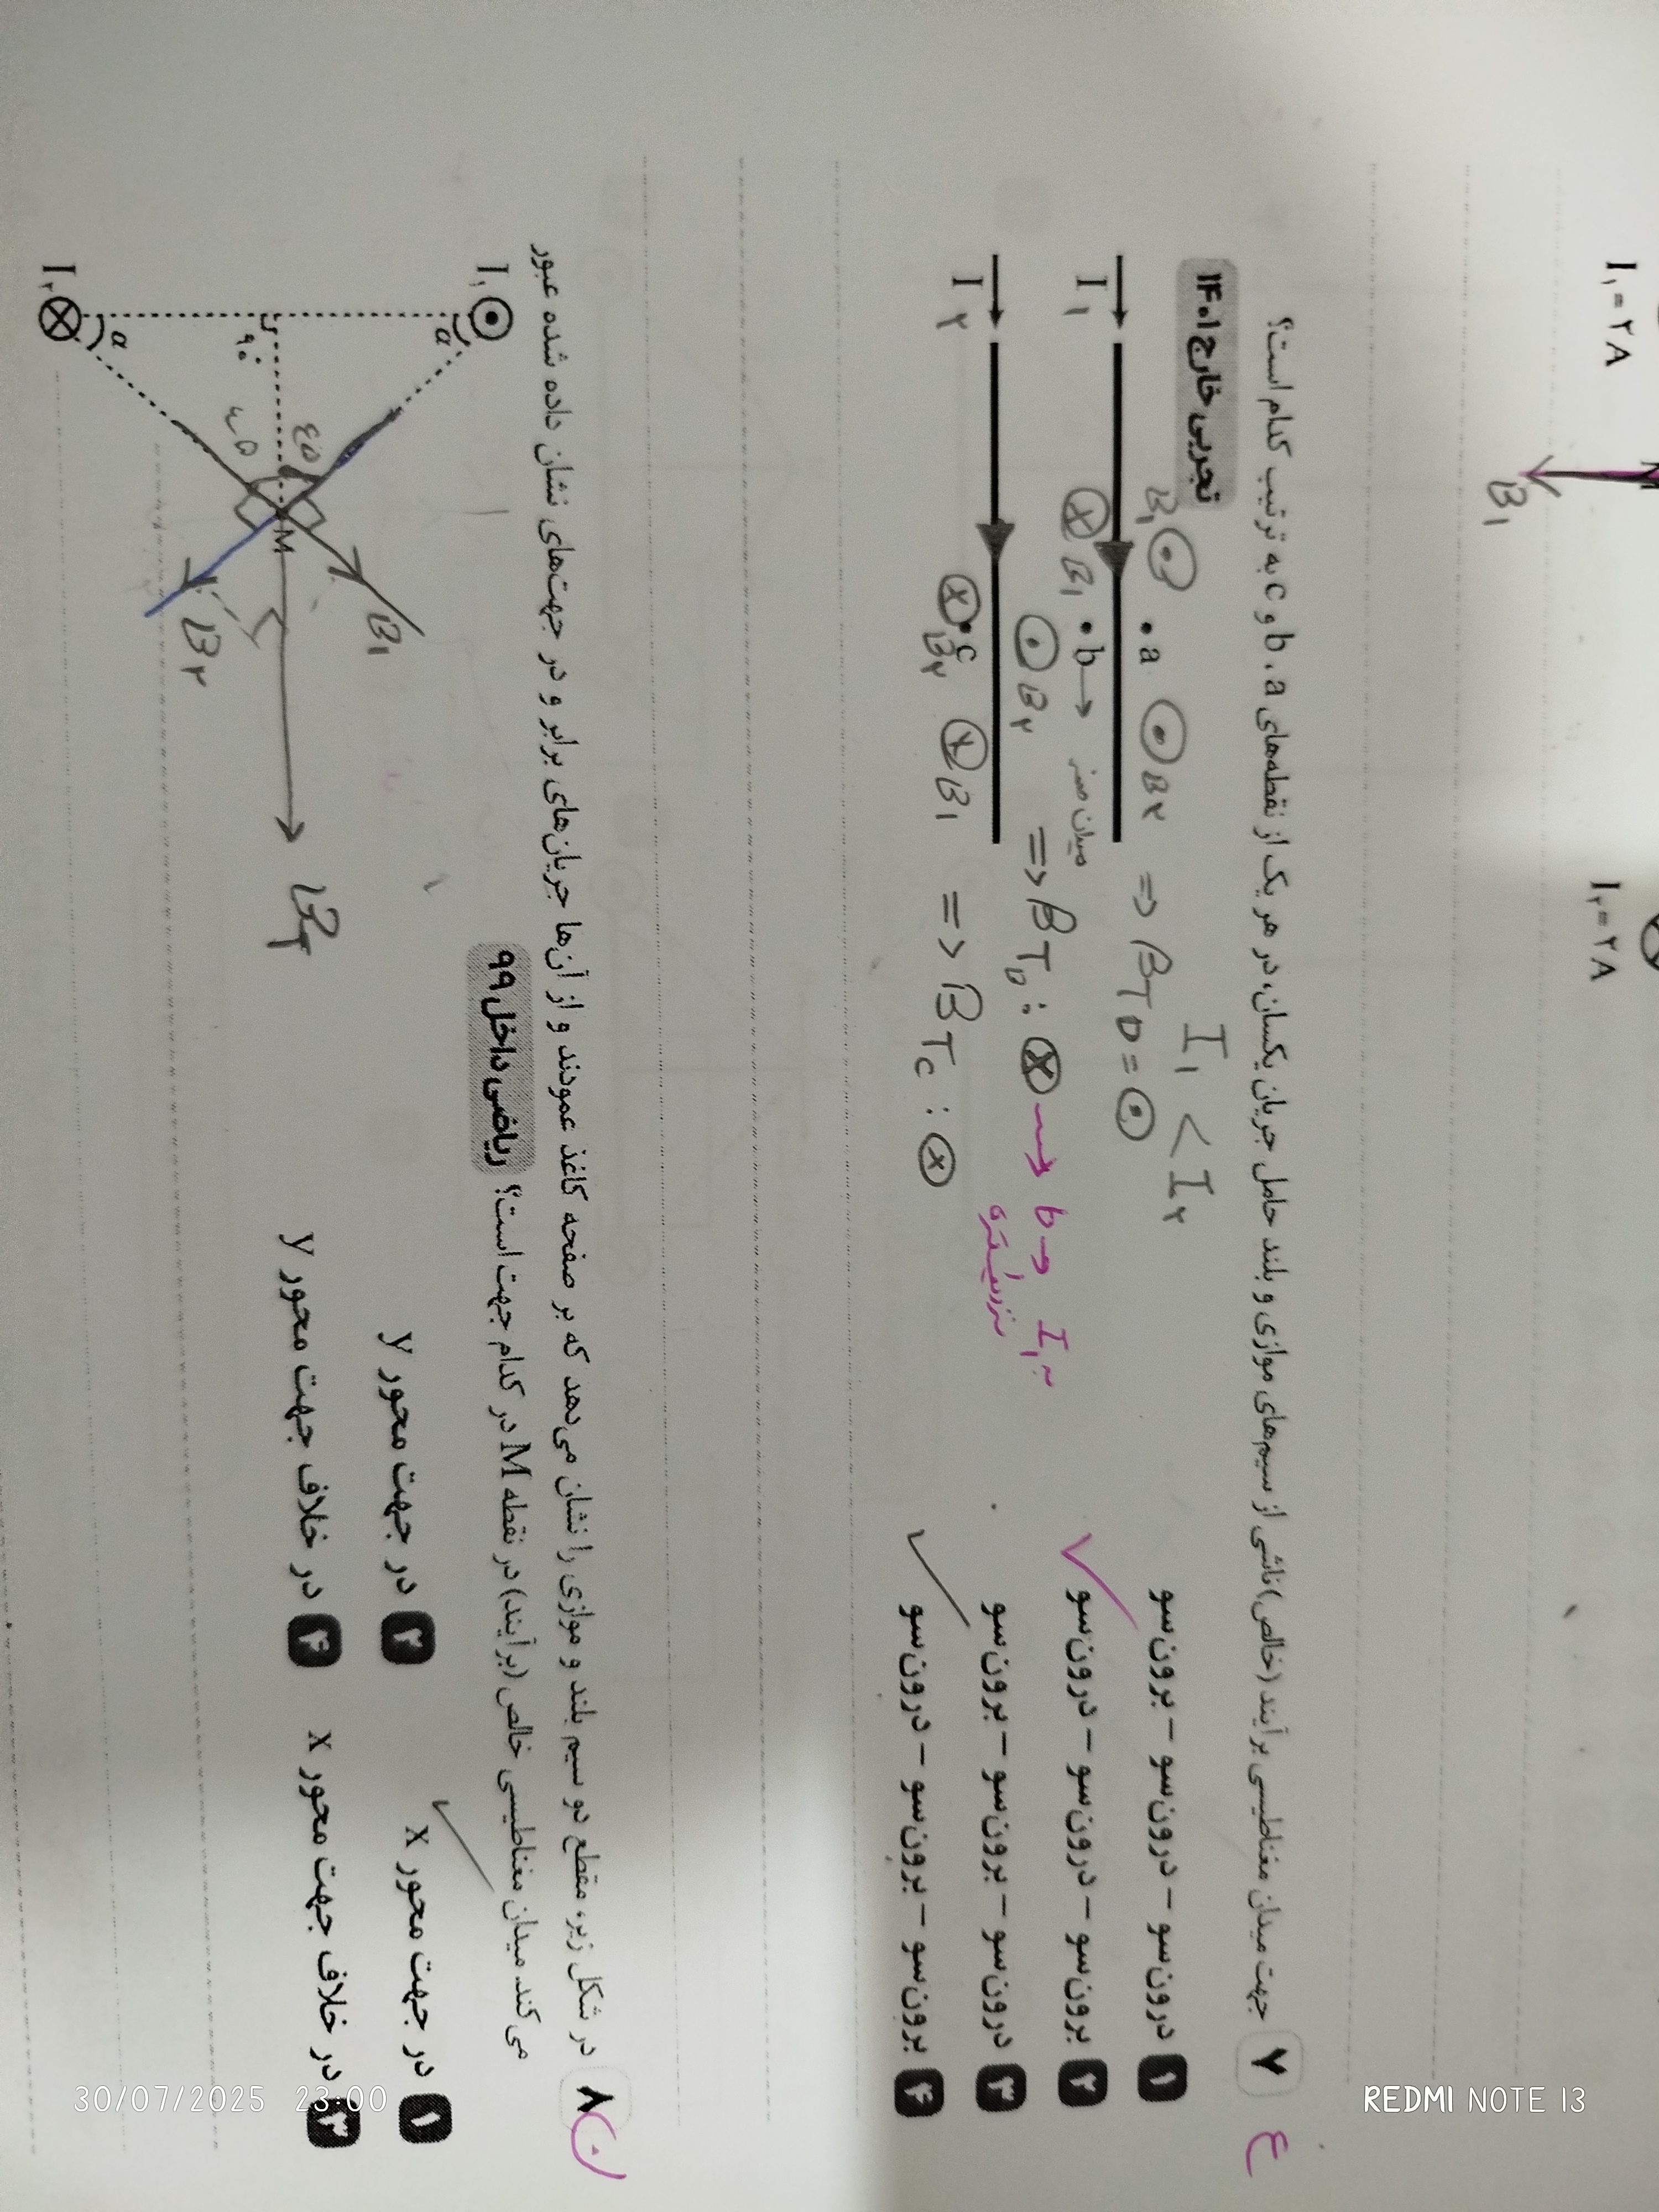 I₁ = ۲A
I₂ = ۲A
B₁
۷ جهت میدان مغناطیسی برآیند (خالص) ناشی از سیم‌های موازی و بلند حامل جریان یکسان، در هر یک از نقطه‌های a، b و c به ترتیب کدام است؟
تجربی خارج ۱۴۰۱
۱ درون‌سو - درون‌سو - برون‌سو
۲ برون‌سو - درون‌سو - درون‌سو
۳ درون‌سو - برون‌سو - برون‌سو
۴ برون‌سو - برون‌سو - درون‌سو
I₁ < I₂
B₁ • a B₂ => B T a =
I₁
B₁ • b → میدان صفر
B₂ => B T b : → b → I₁ به
نزدیکتره
I₂
• c B₂ B₁ => B T c :
۸ در شکل زیر، مقطع دو سیم بلند و موازی را نشان می‌دهد که بر صفحه کاغذ عمودند و از آن‌ها جریان‌های برابر و در جهت‌های نشان داده شده عبور
می‌کند. میدان مغناطیسی خالص (برآیند) در نقطه M در کدام جهت است؟ ریاضی داخل ۹۹
۱ در جهت محور x
۲ در جهت محور y
۳ در خلاف جهت محور x
۴ در خلاف جهت محور y
I₁
α
۹۰°
۴۵
۴۵
M
B₁
B₂
B T
α
I₂
30/07/2025 23:00
REDMI NOTE 13